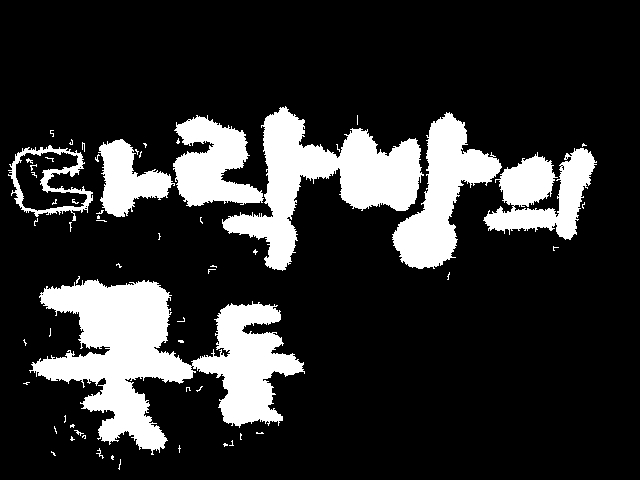 다락방의
꽃들